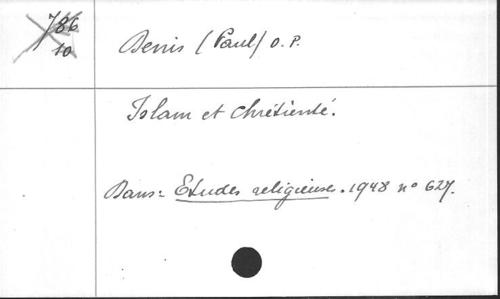 786
10
Denis (Paul) O.P.
Islam et chrétienté.
Dans: Etudes religieuses. 1948 n° 627.